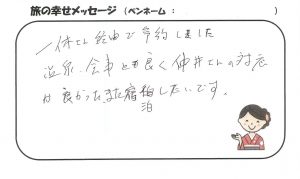 旅の幸せメッセージ（ペンネーム：　　　　）
一休さん経由で予約しました
温泉、食事とも良く仲井さんの対応
は良かったまた宿泊したいです。